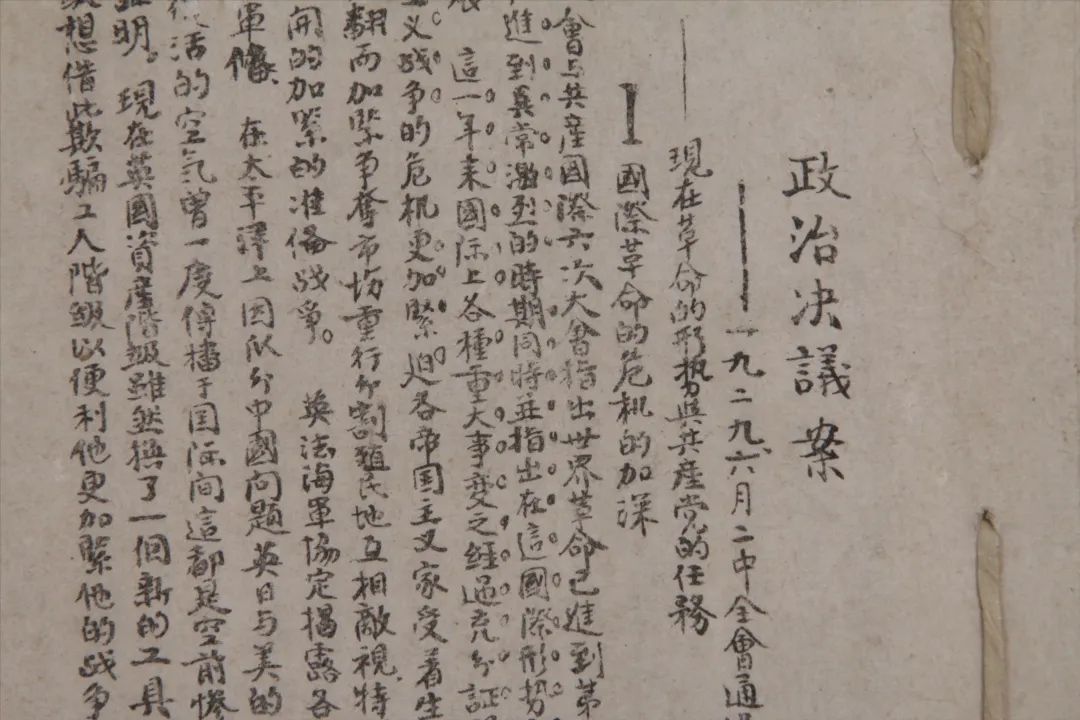 政治決議案
——一九二九、六月二中全會通過
現在革命的形勢與共產党的任務
1 國際革命的危机的加深
會与共產國際六次大會指出世界革命已進到第
進到異常激烈的時期同時並指出在這國際形势
這一年来國际上各種重大事变之經過充分証
义战争的危机更加緊迫各帝国主义家受着生
翻而加緊争奪市場重行分割殖民地互相敵視、特
開的加緊的准俻战爭。 英法海軍協定揭露各
軍俻、 在太平洋上因瓜分中國问題英日与美的
活的空気曾一度傳播于国际间這都是空前惨
明。現在英國資產階級雖然換了一個新的工具
想借此欺騙工人階級以便利他更加緊他的战争